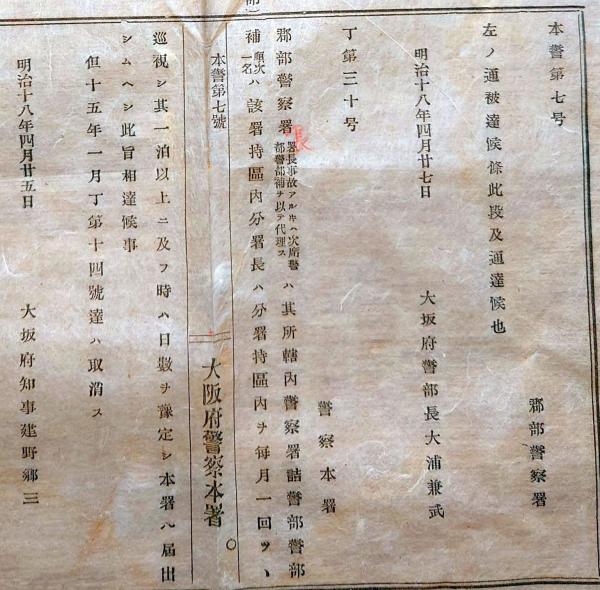 本警第七号
郡部警察署
左ノ通被達候條此段及通達候也
明治十八年四月廿七日
大坂府警部長大浦兼武
丁第三十号
警察本署
郡部警察署署長事故アルキハ次席警部警部補ヲ以テ代理スハ其所轄內警察署詰警部警部
長
補順次一名ハ該署持區內分署長ハ分署持區內ヲ每月一回ツヽ
本警第七號
大阪府警察本署
巡視シ其一泊以上ニ及フ時ハ日數ヲ豫定シ本署ヘ届出
シムヘシ此旨相達候事
但十五年一月丁第十四號達ハ取消ス
明治十八年四月廿五日
大坂府知事建野鄉三